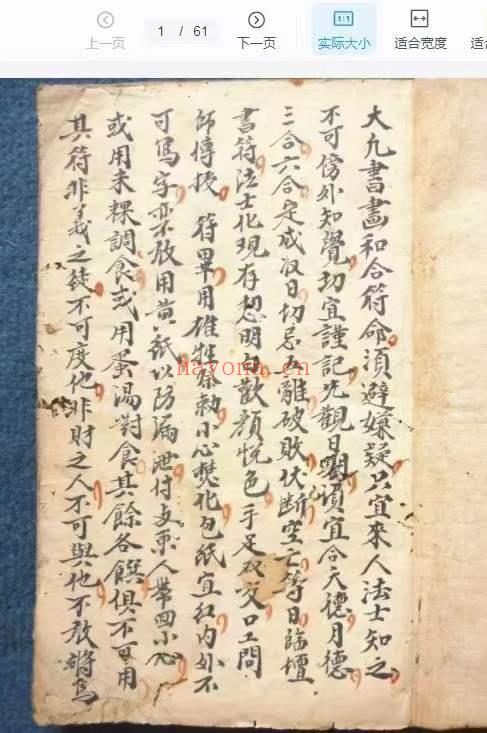 上一页
1 / 61
下一页
1:1
实际大小
适合宽度
适
大凡書畫和合符命須避嫌疑只宜來人法士知之
不可傍外知覺切宜謹記先觀日期須宜合天德月德
三合六合定成收日切忌五離破敗伏斷空亡等日臨壇
書符法士化現存想明白歡顏悅色手足双交口工問
師傳授 符畢用雄牲祭勅小心焚化包紙宜紅内外不
可寫字亦不敢用黄紙以防漏泄付与東人帶回小心
或用米粿調食或用蛋湯對食其餘各饌俱不可用
其符非義之徒不可度他非財之人不可與他不敢將為
nayona.cn